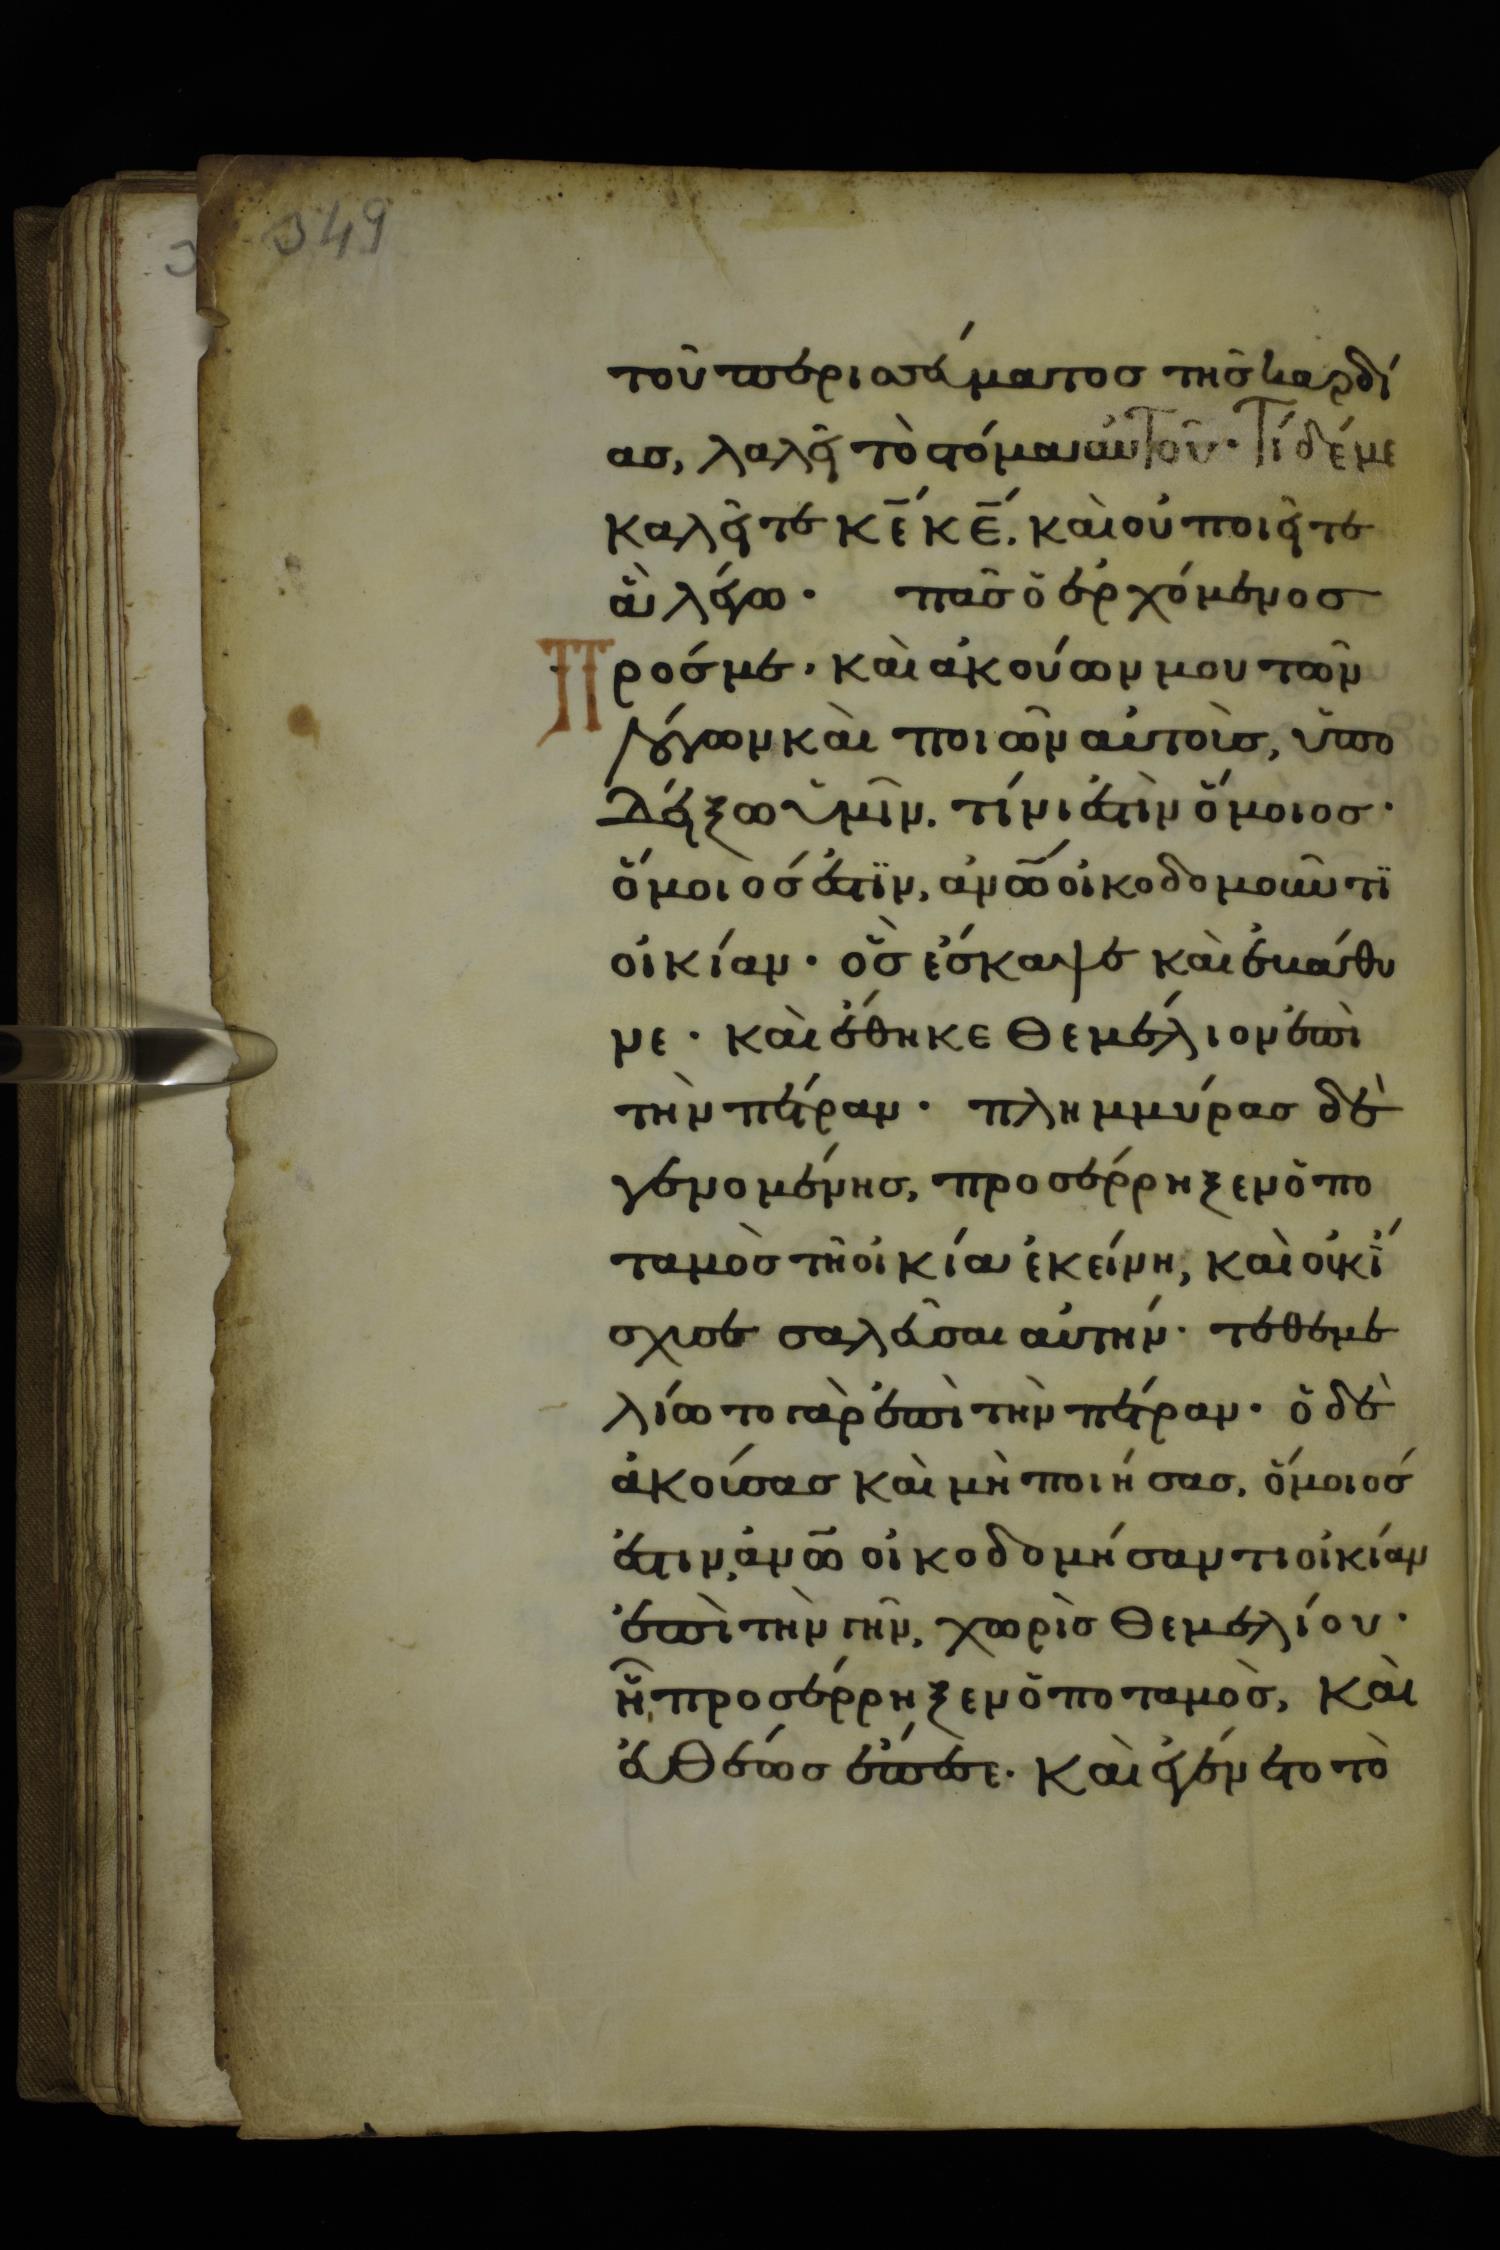 349
τοῦ περισσεύματοσ τῆσ καρδί
ασ, λαλεῖ τὸ στόμα αὐτοῦ· Τί δέ με
καλεῖτε κ̅ε̅ κ̅ε̅. καὶ οὐ ποιεῖτε
ἃ λέγω· πᾶσ ὁ ἐρχόμενοσ
πρόσ με· καὶ ἀκούων μου τῶν
λόγων καὶ ποιῶν αὐτοὺσ, ὑπο
δείξω ὑμῖν. τίνι ἐστὶν ὅμοιοσ·
ὅμοιόσ ἐστϊν, ἀν̅ω̅ οἰκοδομοῦντϊ
οἰκίαν· ὃσ ἔσκαψε καὶ ἐβάθυ
νε· καὶ ἔθηκε θεμέλιον ἐπὶ
τὴν πέτραν· πλημμύρασ δὲ
γενομένησ, προσέρρηξεν ὁ πο
ταμὸσ τῆ οἰκία ἐκείνη, καὶ οὐκ ἴ
σχυσε σαλεῦσαι αὐτήν· τεθεμε
λίωτο γὰρ ἐπὶ τὴν πέτραν· ὁ δὲ
ἀκούσασ καὶ μὴ ποιήσασ, ὅμοιόσ
ἐστιν, ἀν̅ω̅ οἰκοδομήσαντι οἰκίαν
ἐπὶ τὴν γῆν, χωρὶσ θεμελίου·
ἧ προσέρρηξεν ὁ ποταμὸσ, καὶ
εὐθέωσ ἔπεσε· καὶ ἐγένετο τὸ